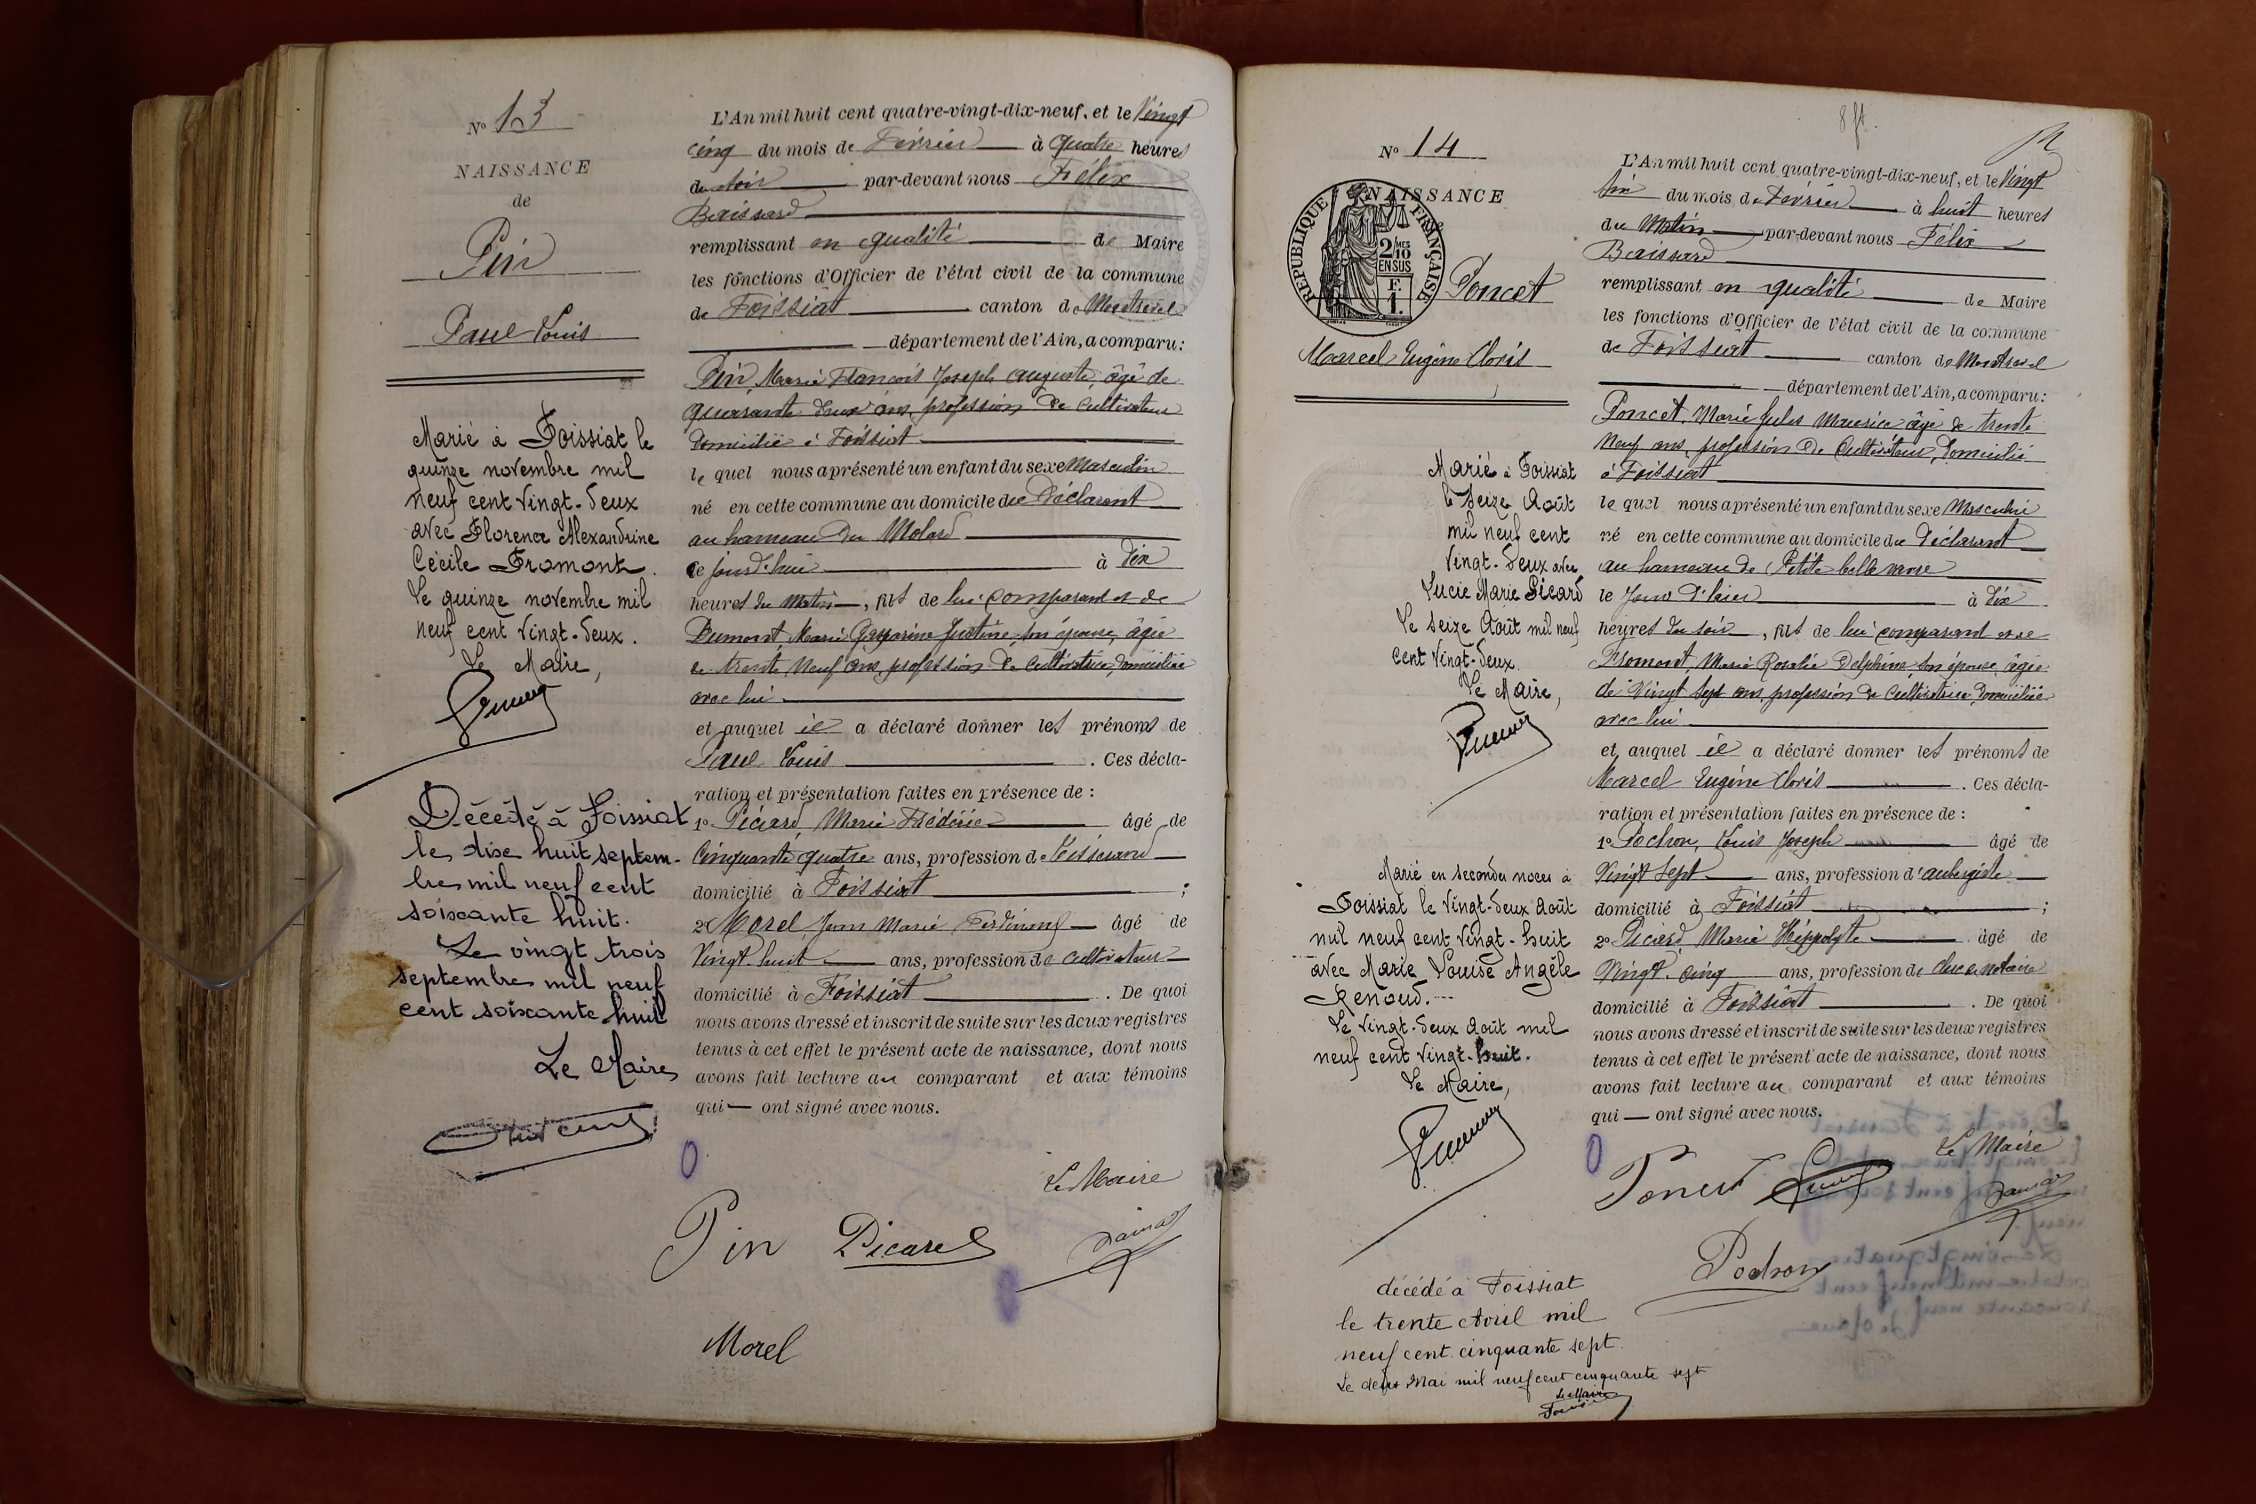 N° 13
NAISSANCE
de
Pin
Paul Louis
Marié à Foissiat le
quinze novembre mil
neuf cent vingt-deux
avec Florence Alexandrine
Cécile Fromont.
Le quinze novembre mil
neuf cent vingt-deux.
Le Maire,
Décédé à Foissiat
le dix huit septem-
bre mil neuf cent
soixante huit.
Le vingt trois
septembre mil neuf
cent soixante huit
Le Maire
L'An mil huit cent quatre-vingt-dix-neuf, et le Vingt
cinq du mois de Février à quatre heures
du soir par-devant nous Félix
remplissant en qualité de Maire
les fonctions d'Officier de l'état civil de la commune
de Foissiat canton de Montrevel
département de l'Ain, a comparu:
Pin, Marie François Joseph Auguste, âgé de
quarante deux ans, profession de cultivateur
domicilié à Foissiat
le quel nous a présenté un enfant du sexe Masculin
né en cette commune au domicile du Déclarant
au hameau du Molard
ce jourd'hui à dix
heures du Matin, fils de lui comparant et de
Dumont, Marie Gasparine Justine, son épouse, âgée
de trente neuf ans, profession de cultivatrice, domiciliée
avec lui
et auquel il a déclaré donner les prénoms de
Paul Louis. Ces décla-
ration et présentation faites en présence de :
1° Picard, Marie Frédéric âgé de
Cinquante quatre ans, profession de Tisserand
domicilié à Foissiat ;
2° Morel, Jean Marie Ferdinand âgé de
Vingt huit ans, profession de cultivateur
domicilié à Foissiat. De quoi
nous avons dressé et inscrit de suite sur les deux registres
tenus à cet effet le présent acte de naissance, dont nous
avons fait lecture au comparant et aux témoins
qui — ont signé avec nous.
Le Maire
Pin Picard
Morel
8 ft.
N° 14
NAISSANCE
RÉPUBLIQUE FRANÇAISE
2/10 MES
EN SUS
F.
1.
Poncet
Marcel Eugène Cloris
Marié à Foissiat
le seize Août
mil neuf cent
vingt-deux avec
Lucie Marie Picard
Le seize Août mil neuf
cent vingt-deux
Le Maire,
Marié en secondes noces à
Foissiat le vingt-deux août
mil neuf cent vingt-huit
avec Marie Louise Angèle
Renoud.
Le vingt-deux août mil
neuf cent vingt-huit.
Le Maire,
décédé à Foissiat
le trente Avril mil
neuf cent cinquante sept
Le deux Mai mil neuf cent cinquante sept
Le Maire
L'An mil huit cent quatre-vingt-dix-neuf, et le Vingt
six du mois de Février à huit heures
du Matin par-devant nous Félix
remplissant en qualité de Maire
les fonctions d'Officier de l'état civil de la commune
de Foissiat canton de Montrevel
département de l'Ain, a comparu:
Poncet, Marie Jules Maurice âgé de trente
neuf ans, profession de Cultivateur, domicilié
à Foissiat
le quel nous a présenté un enfant du sexe Masculin
né en cette commune au domicile du Déclarant
au hameau de Petite belle
le jour d'hier à dix
heures du soir, fils de lui comparant et de
Fromont, Marie Rosalie Delphine, son épouse, âgée
de Vingt sept ans, profession de Cultivatrice, domiciliée
avec lui
et auquel il a déclaré donner les prénoms de
Marcel Eugène Cloris. Ces décla-
ration et présentation faites en présence de :
1° Pochon, Louis Joseph âgé de
Vingt sept ans, profession d'aubergiste
domicilié à Foissiat ;
2° Picard, Marie Hippolyte âgé de
Vingt cinq ans, profession de clerc de notaire
domicilié à Foissiat. De quoi
nous avons dressé et inscrit de suite sur les deux registres
tenus à cet effet le présent acte de naissance, dont nous
avons fait lecture au comparant et aux témoins
qui — ont signé avec nous.
Le Maire
Poncet
Pochon